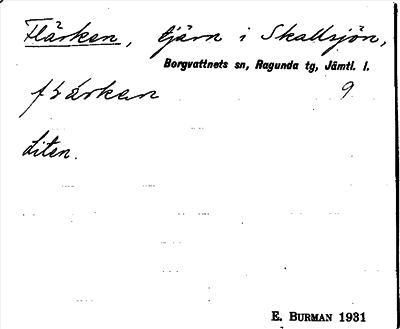 Flärken, tjärn i Skallsjön,
Borgvattnets sn, Ragunda tg, Jämtl. l.
9
Liten.
E. BURMAN 1931